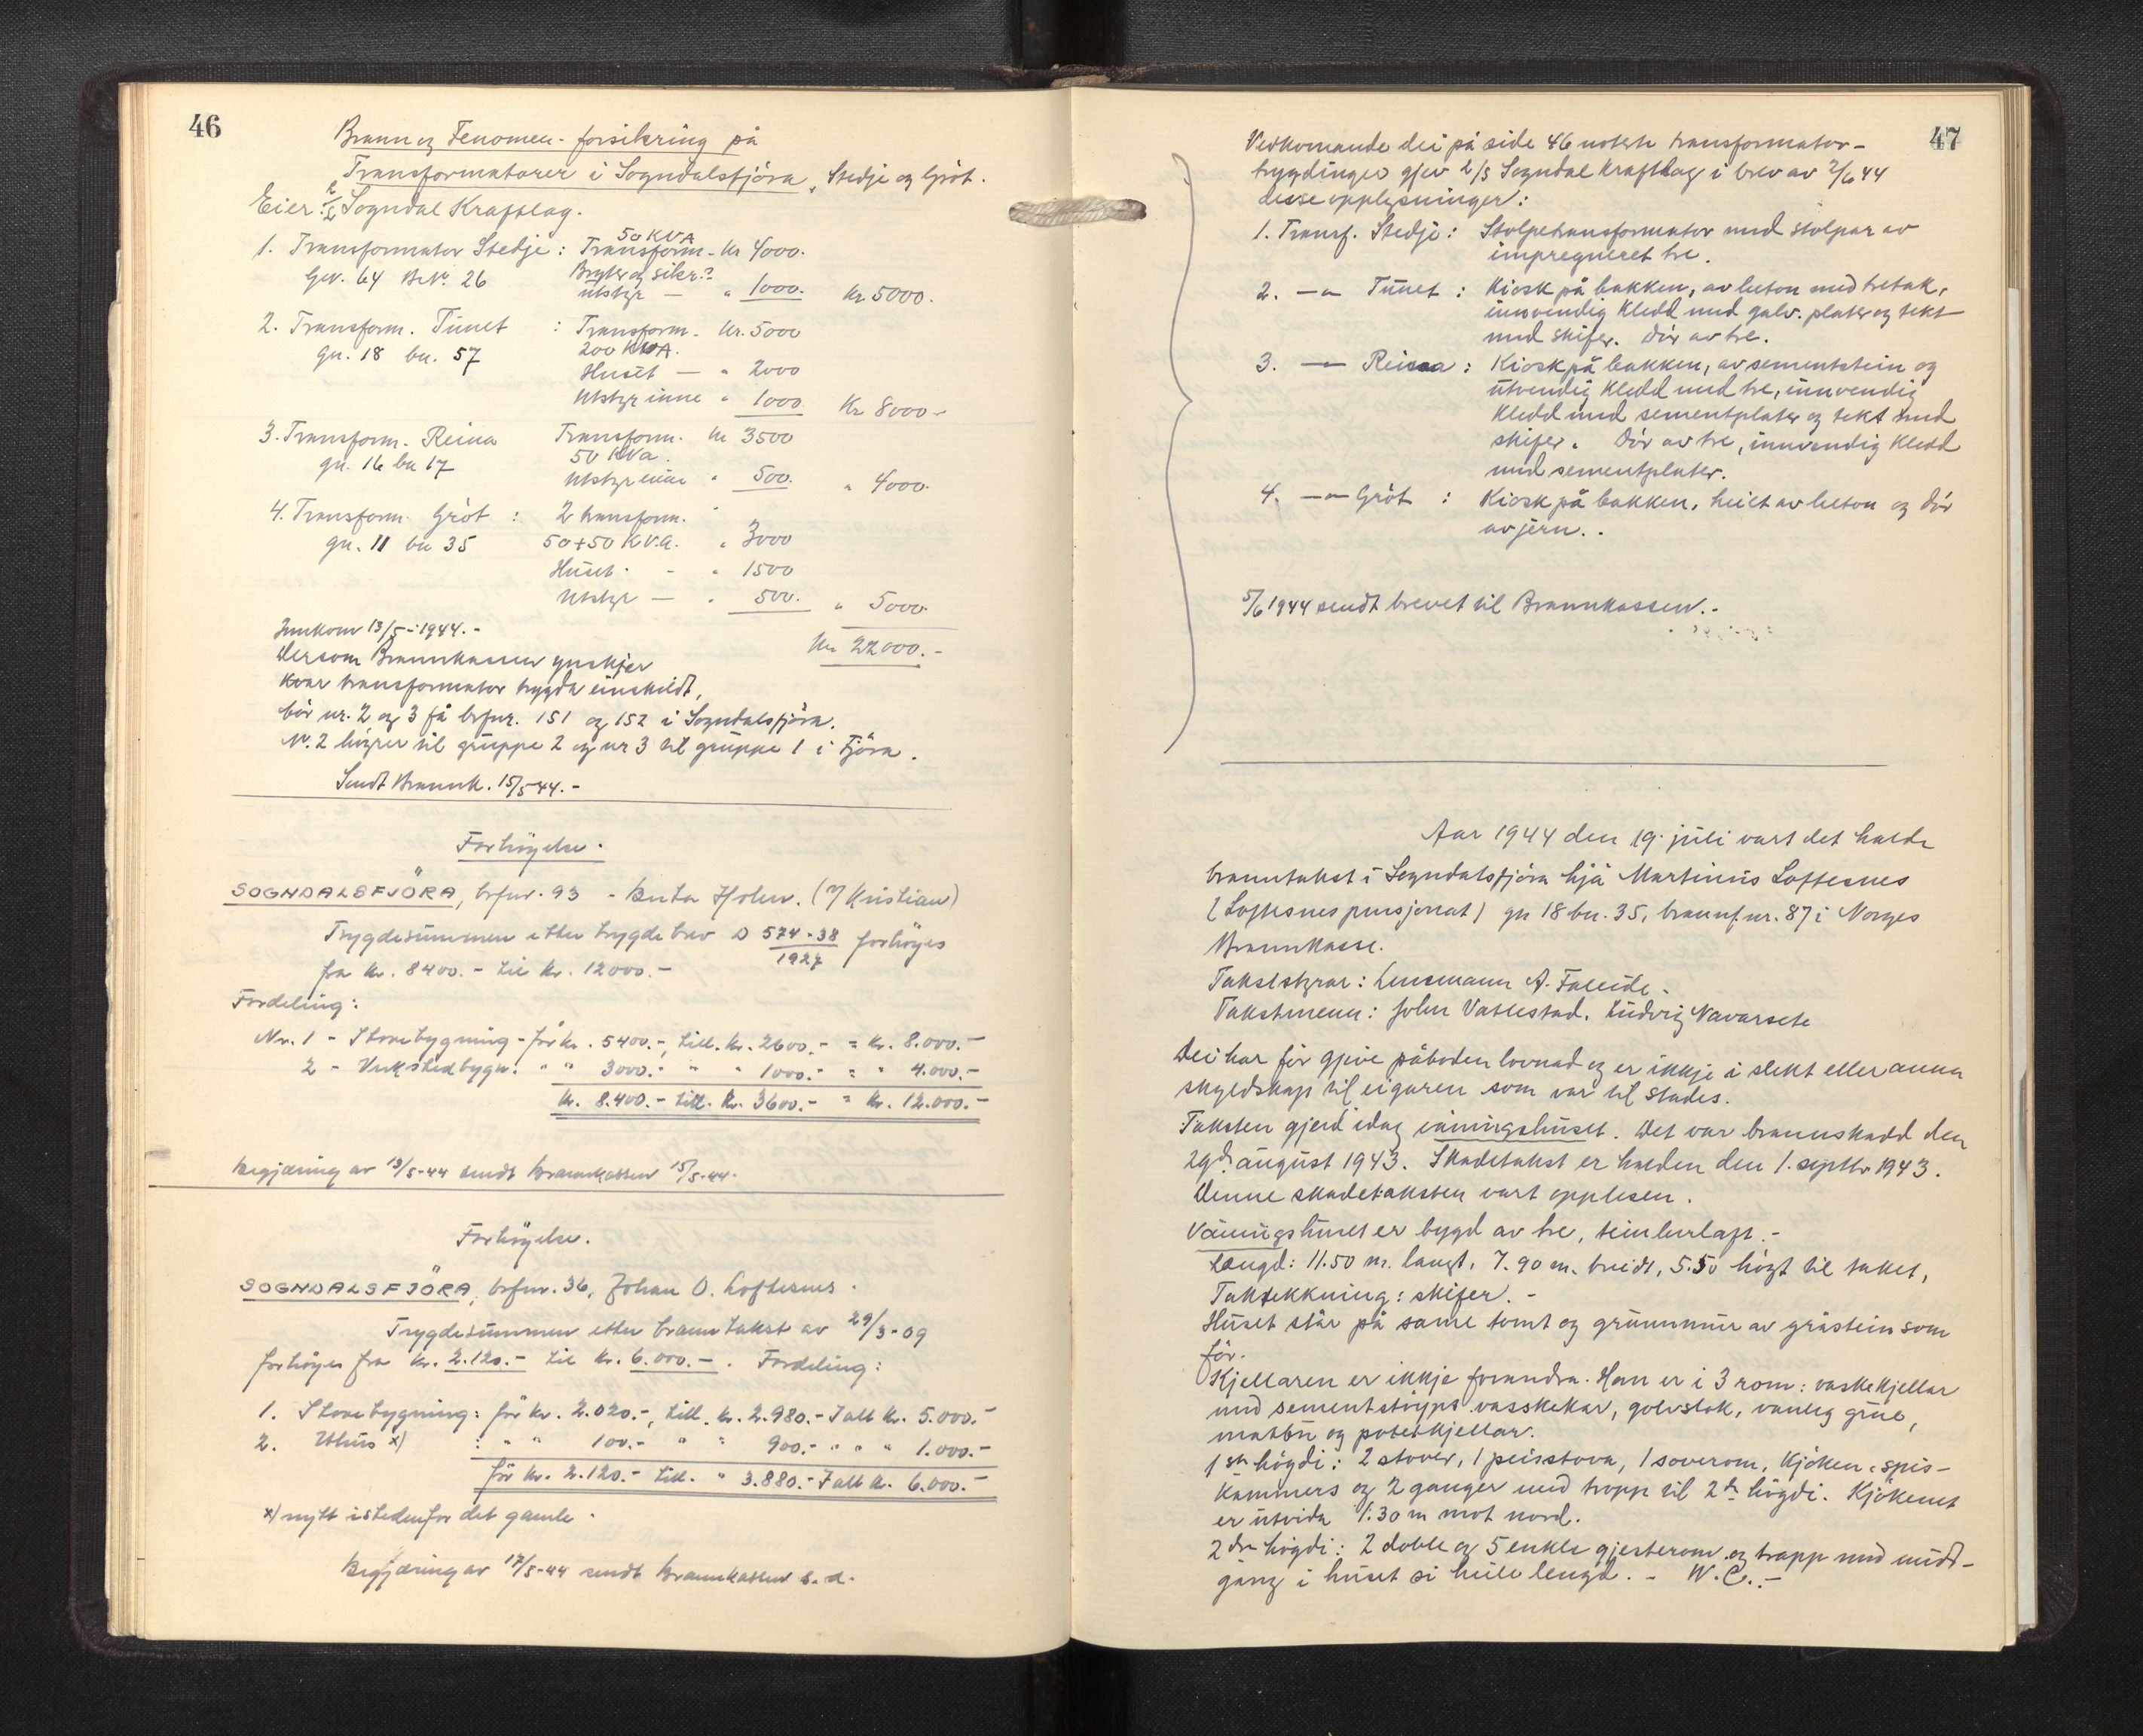 46
Brann og Fenomen- forsikring på
Transformatorer i Sogndalsfjöra, Stedje og Gröt.
Eier: L/L Sogndal Kraftlag.
50 KVA
1. Transformator Stedje : Transform - kr 4000.
Gnr. 64 Bnr. 26 Bryter og sikr.?
utstyr — " 1000. kr 5000.
2. Transform. Tunet : Transform - kr. 5000
gn. 18 bn. 57 200 KVA.
Huset — " 2000
Utstyr inne " 1000. Kr 8000.-
3. Transform. Reina Transform. kr 3500
gn. 16 bn 17 50 KVa.
Utstyr inne " 500. " 4000.
4. Transform. Gröt : 2 transform.
gn. 11 bn 35 50+50 KV.a. " 3000
Huset. - " 1500
Utstyr — " 500. " 5000.
Innkom 13/5-1944.-
Kr 22000.-
Dersom Brannkassen ynskjer
kvar transformator trygda einskildt,
bör nr. 2 og 3 få brfnr. 151 og 152 i Sogndalsfjöra.
Nr. 2 höyrer til gruppe 2 og nr 3 til gruppe 1 i Fjöra.
Sendt Brannk. 15/5-44.-
Forhöyelse.
SOGNDALSFJÖRA, brfnr. 93 - Berta Holen. (M Kristian)
Trygdesummen etter trygdebrev D 574-38/1927 forhöyes
fra kr. 8400.- til kr. 12000.-
Fordeling:
Nr. 1 - Stovebygning - för kr. 5400.-, till. kr. 2600.- = kr. 8.000.-
2 - Verkstedbygn. " " 3000.- " " 1000.- = " 4.000.-
kr. 8.400.- till. kr. 3600.- = kr. 12.000.-
Begjæring av 13/5-44 sendt Brannkassen 15/5-44.
Forhöyelse.
SOGNDALSFJÖRA, brfnr. 36, Johan O. Loftesnes.
Trygdesummen etter branntakst av 29/3-09
forhöyes fra kr. 2.120.- til kr. 6.000.-. Fordeling:
1. Stovebygning: för kr. 2.020.-, till. kr. 2.980.- I alt kr. 5.000.-
2. Uthus x) : " " 100.- " " 900.- " " " 1.000.-
för kr. 2.120.- till. " 3.880.- I alt kr. 6.000.-
x) nytt istedenfor det gamle.
Begjæring av 17/5-44 sendt Brannkassen s. d.
47
Vedkomande dei på side 46 noterte transformator-
bygdinger gjev L/L Sogndal Kraftlag i brev av 2/6 44
desse opplysninger:
1. Transf. Stedje: Stolpetransformator med stolpar av
impregneret tre.
2. —"— Tunet : Kiosk på bakken, av beton med tretak,
innvendig kledd med galv. plater og tekt
med skifer. Dör av tre.
3. —"— Reina : Kiosk på bakken, av sementstein og
utvendig kledd med tre, innvendig
kledd med sementplater og tekt med
skifer. Dör av tre, innvendig kledd
med sementplater.
4. —"— Gröt : Kiosk på bakken, heilt av beton og dör
av jern..
5/6 1944 sendt brevet til Brannkassen.-
Aar 1944 den 19. juli vart det halde
branntakst i Sogndalsfjöra hjå Martinus Loftesnes
(Loftesnes pensjonat) gn 18 bn. 35, brannf.nr. 87 i Norges
Brannkasse.
Takststyrar: Lensmann A. Faleide.
Takstmenn: John Vatlestad. Ludvig Navarsete
Dei har för gjeve påboden lovnad og er ikkje i slekt eller anna
skyldskap til eigaren som var til stades.
Taksten gjeld idag våningshuset. Det var brannskadd den
29de august 1943. Skadetakst er halden den 1. septbr 1943.
Denne skadetaksten vart opplesen.
Våningshuset er bygd av tre, timberlaft.-
Längd: 11.50 m. langt, 7.90 m. breidt, 5.50 högt til taket,
Taktekkning: skifer.-
Huset står på same tomt og grunnmur av gråstein som
för.
Kjellaren er ikkje forandra. Han er i 3 rom: vaskekjellar
med sementstöypt vasskekar, golvslok, vanleg grue,
matbu og potetkjellar.
1ste högdi: 2 stover, 1 peisstova, 1 soverom, kjöken, spis-
kammers og 2 ganger med tropp til 2dre högdi. Kjökenet
er utvida 1.30 m mot nord.
2dre högdi: 2 doble og 5 enkle gjesterom og trapp med midt-
gang i huset si heile lengd.- W.C.-